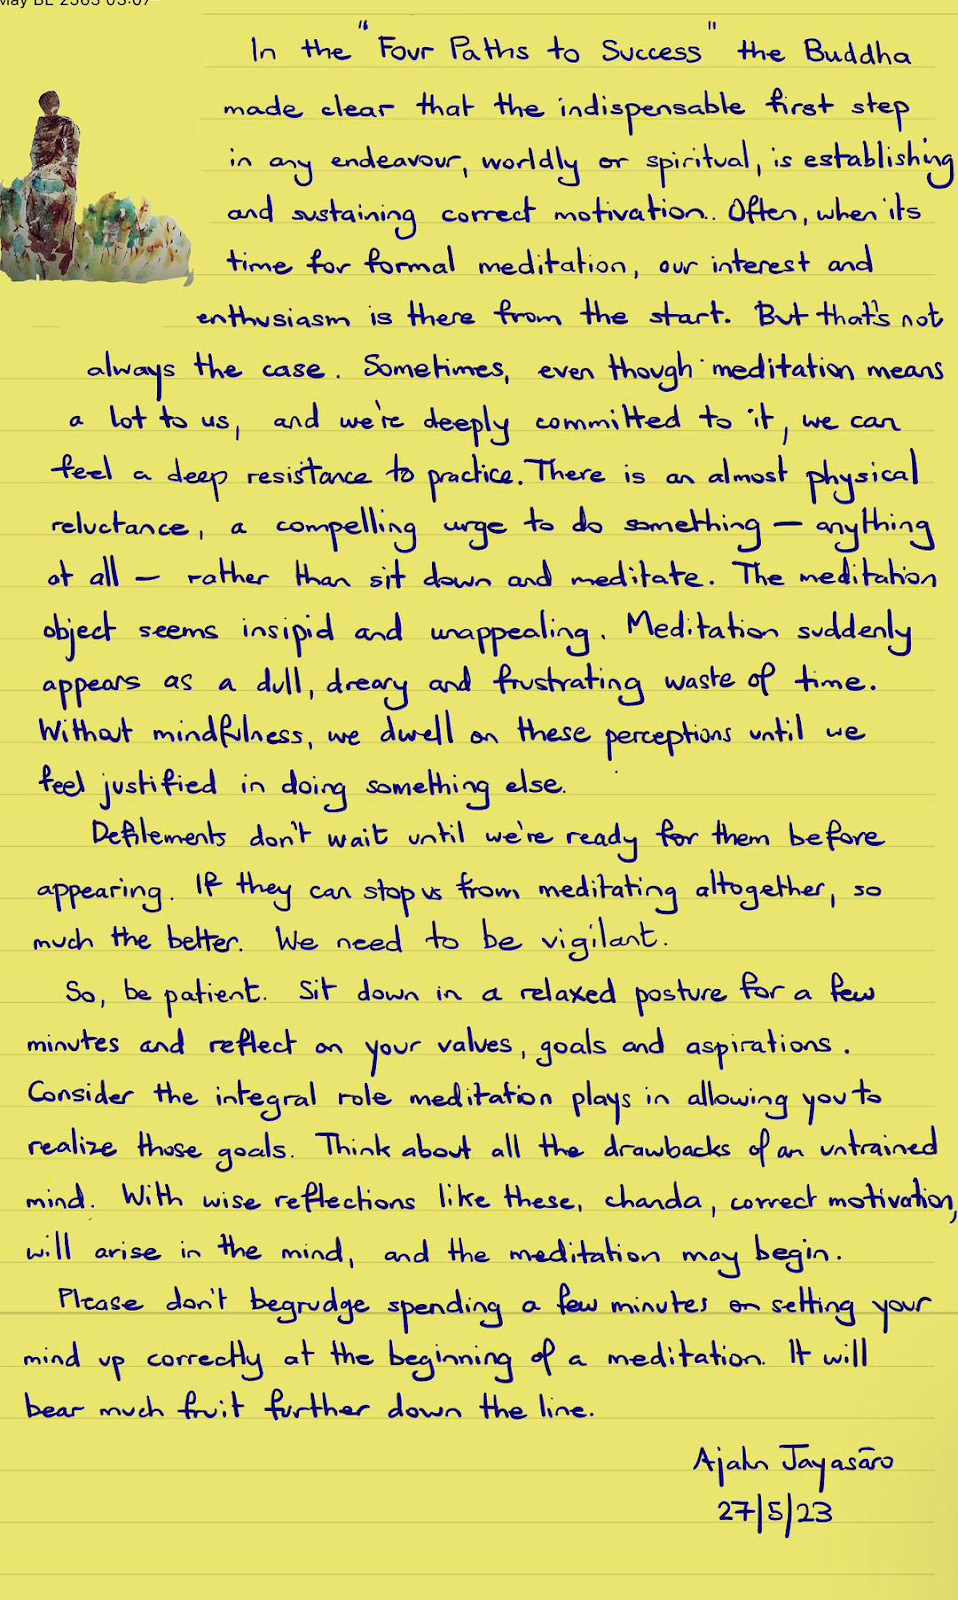 In the "Four Paths to Success" the Buddha
made clear that the indispensable first step
in any endeavour, worldly or spiritual, is establishing
and sustaining correct motivation. Often, when its
time for formal meditation, our interest and
enthusiasm is there from the start. But that's not
always the case. Sometimes, even though meditation means
a lot to us, and we're deeply committed to it, we can
feel a deep resistance to practice. There is an almost physical
reluctance, a compelling urge to do something – anything
at all – rather than sit down and meditate. The meditation
object seems insipid and unappealing. Meditation suddenly
appears as a dull, dreary and frustrating waste of time.
Without mindfulness, we dwell on these perceptions until we
feel justified in doing something else.
Defilements don't wait until we're ready for them before
appearing. If they can stop us from meditating altogether, so
much the better. We need to be vigilant.
So, be patient. Sit down in a relaxed posture for a few
minutes and reflect on your values, goals and aspirations.
Consider the integral role meditation plays in allowing you to
realize those goals. Think about all the drawbacks of an untrained
mind. With wise reflections like these, chanda, correct motivation,
will arise in the mind, and the meditation may begin.
Please don't begrudge spending a few minutes on setting your
mind up correctly at the beginning of a meditation. It will
bear much fruit further down the line.
Ajahn Jayasāro
27/5/23